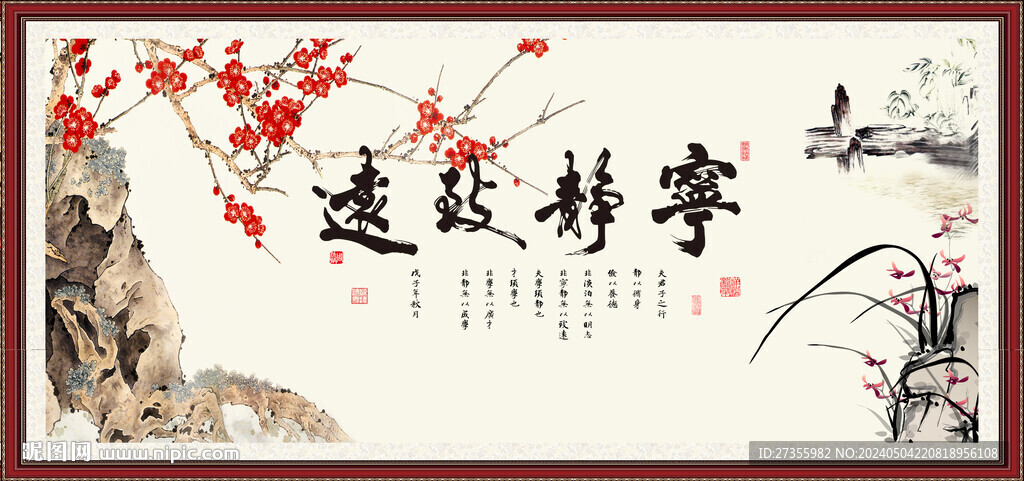 寧靜致遠
夫君子之行
靜以脩身
儉以養德
非淡泊無以明志
非寧靜無以致遠
夫學須靜也
才須學也
非學無以廣才
非靜無以成學
戊子年秋月
昵图网 www.nipic.com
ID:27355982 NO:20240504220818956108